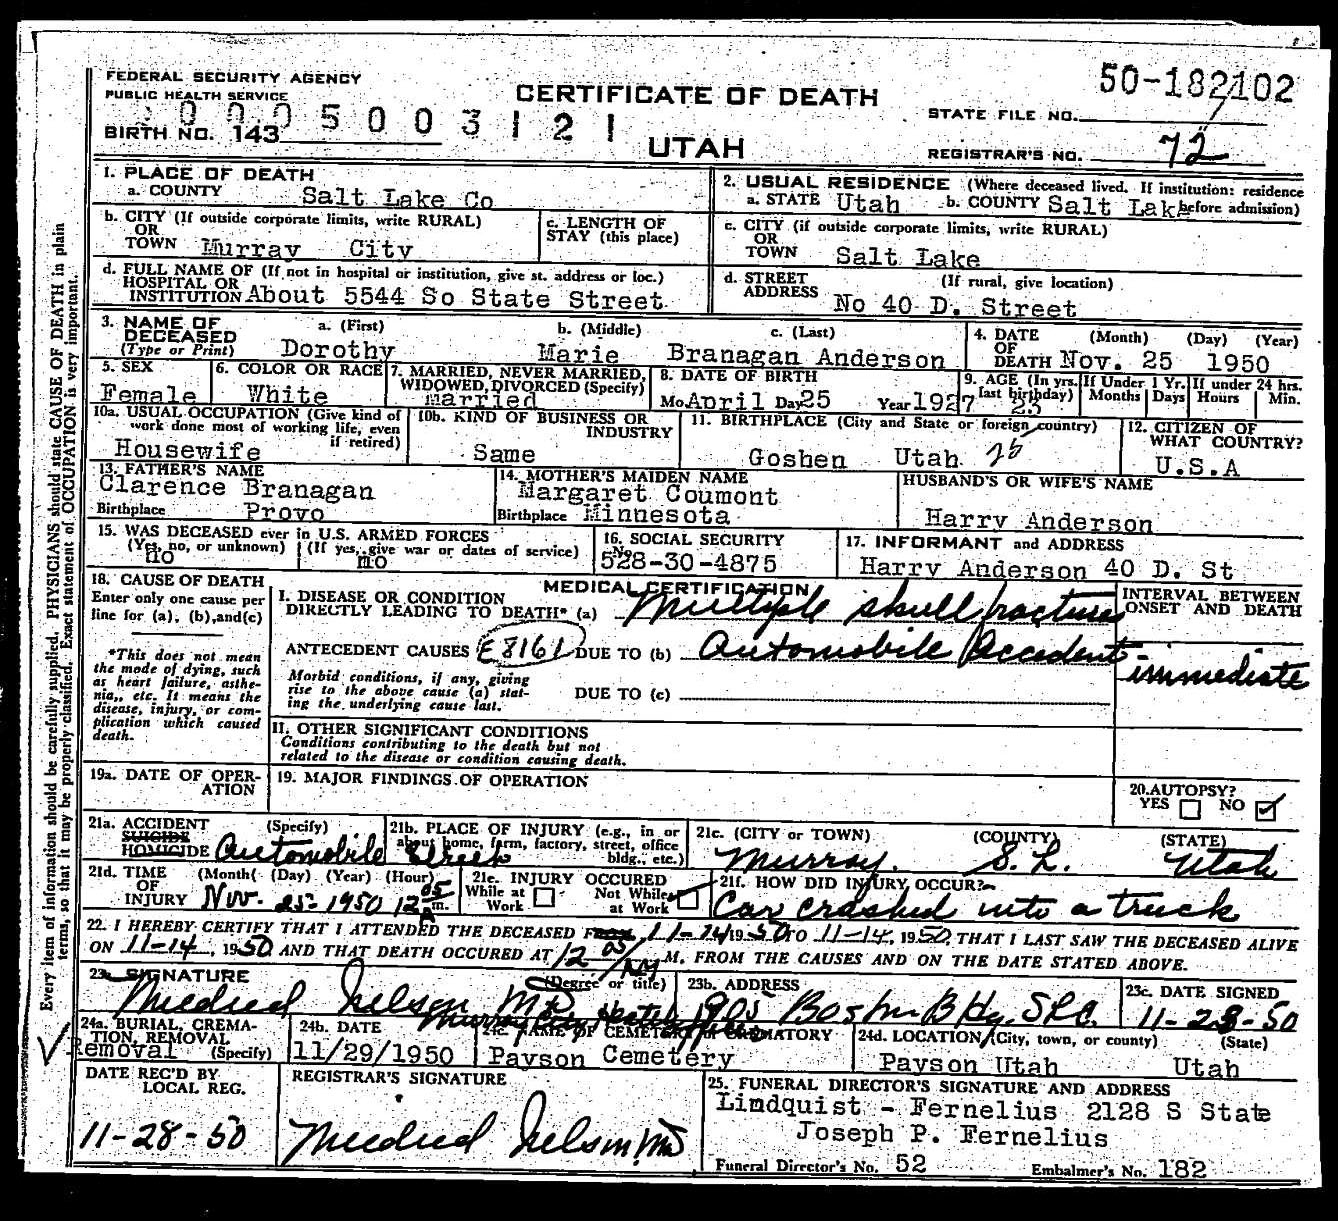 FEDERAL SECURITY AGENCY
PUBLIC HEALTH SERVICE
CERTIFICATE OF DEATH
50-182102
STATE FILE NO.
BIRTH NO. 143
0005003121
UTAH
REGISTRAR'S NO. 72
1. PLACE OF DEATH
a. COUNTY Salt Lake Co
2. USUAL RESIDENCE (Where deceased lived. If institution: residence before admission)
a. STATE Utah b. COUNTY Salt Lake
b. CITY (If outside corporate limits, write RURAL)
OR
TOWN Murray City
c. LENGTH OF STAY (this place)
c. CITY (if outside corporate limits, write RURAL)
OR
TOWN Salt Lake
d. FULL NAME OF (If not in hospital or institution, give st. address or loc.)
HOSPITAL OR
INSTITUTION About 5544 So State Street
d. STREET ADDRESS (If rural, give location)
No 40 D. Street
3. NAME OF DECEASED (Type or Print)
a. (First) b. (Middle) c. (Last)
Dorothy Marie Branagan Anderson
4. DATE OF DEATH (Month) (Day) (Year)
Nov. 25 1950
5. SEX
Female
6. COLOR OR RACE
White
7. MARRIED, NEVER MARRIED, WIDOWED, DIVORCED (Specify)
married
8. DATE OF BIRTH
Mo April Day 25 Year 1927
9. AGE (In yrs. last birthday) 23
If Under 1 Yr. Months Days
If under 24 hrs. Hours Min.
10a. USUAL OCCUPATION (Give kind of work done most of working life, even if retired)
Housewife
10b. KIND OF BUSINESS OR INDUSTRY
Same
11. BIRTHPLACE (City and State or foreign country)
Goshen Utah
12. CITIZEN OF WHAT COUNTRY?
U.S.A
13. FATHER'S NAME
Clarence Branagan
Birthplace Provo
14. MOTHER'S MAIDEN NAME
Margaret Coumont
Birthplace Minnesota
HUSBAND'S OR WIFE'S NAME
Harry Anderson
15. WAS DECEASED ever in U.S. ARMED FORCES
(Yes, no, or unknown) (If yes, give war or dates of service)
no no
16. SOCIAL SECURITY No.
528-30-4875
17. INFORMANT and ADDRESS
Harry Anderson 40 D. St
18. CAUSE OF DEATH
Enter only one cause per line for (a), (b), and (c)
*This does not mean the mode of dying, such as heart failure, asthenia, etc. It means the disease, injury, or complication which caused death.
MEDICAL CERTIFICATION
I. DISEASE OR CONDITION DIRECTLY LEADING TO DEATH* (a) Multiple skull fractures
ANTECEDENT CAUSES E8161 DUE TO (b) Automobile Accident -
Morbid conditions, if any, giving rise to the above cause (a) stating the underlying cause last.
DUE TO (c)
INTERVAL BETWEEN ONSET AND DEATH
immediate
II. OTHER SIGNIFICANT CONDITIONS
Conditions contributing to the death but not related to the disease or condition causing death.
19a. DATE OF OPERATION
19. MAJOR FINDINGS OF OPERATION
20. AUTOPSY?
YES NO
21a. ACCIDENT SUICIDE HOMICIDE (Specify) Automobile
21b. PLACE OF INJURY (e.g., in or about home, farm, factory, street, office bldg., etc.)
Street
21c. (CITY or TOWN) (COUNTY) (STATE)
Murray. S. L. Utah
21d. TIME OF INJURY (Month) (Day) (Year) (Hour)
Nov. 25 - 1950 12 05 A m.
21e. INJURY OCCURED
While at Work Not While at Work
21f. HOW DID INJURY OCCUR?
Car crashed into a truck
22. I HEREBY CERTIFY THAT I ATTENDED THE DECEASED FROM 11-14 1950 TO 11-14, 1950, THAT I LAST SAW THE DECEASED ALIVE
ON 11-14, 1950 AND THAT DEATH OCCURED AT 12 05 AM M, FROM THE CAUSES AND ON THE DATE STATED ABOVE.
23a. SIGNATURE (Degree or title)
Mildred Nelson MD
Murray City
23b. ADDRESS
905 Boston Bldg. SLC.
23c. DATE SIGNED
11-28-50
24a. BURIAL, CREMATION, REMOVAL (Specify)
Removal
24b. DATE
11/29/1950
24c. NAME OF CEMETERY OR CREMATORY
Payson Cemetery
24d. LOCATION (City, town, or county) (State)
Payson Utah Utah
DATE REC'D BY LOCAL REG.
11-28-50
REGISTRAR'S SIGNATURE
Mildred Nelson, MD
25. FUNERAL DIRECTOR'S SIGNATURE AND ADDRESS
Lindquist - Fernelius 2128 S State
Joseph P. Fernelius
Funeral Director's No. 52 Embalmer's No. 182
Every item of information should be carefully supplied. PHYSICIANS should state CAUSE OF DEATH in plain
terms, so that it may be properly classified. Exact statement of OCCUPATION is very important.